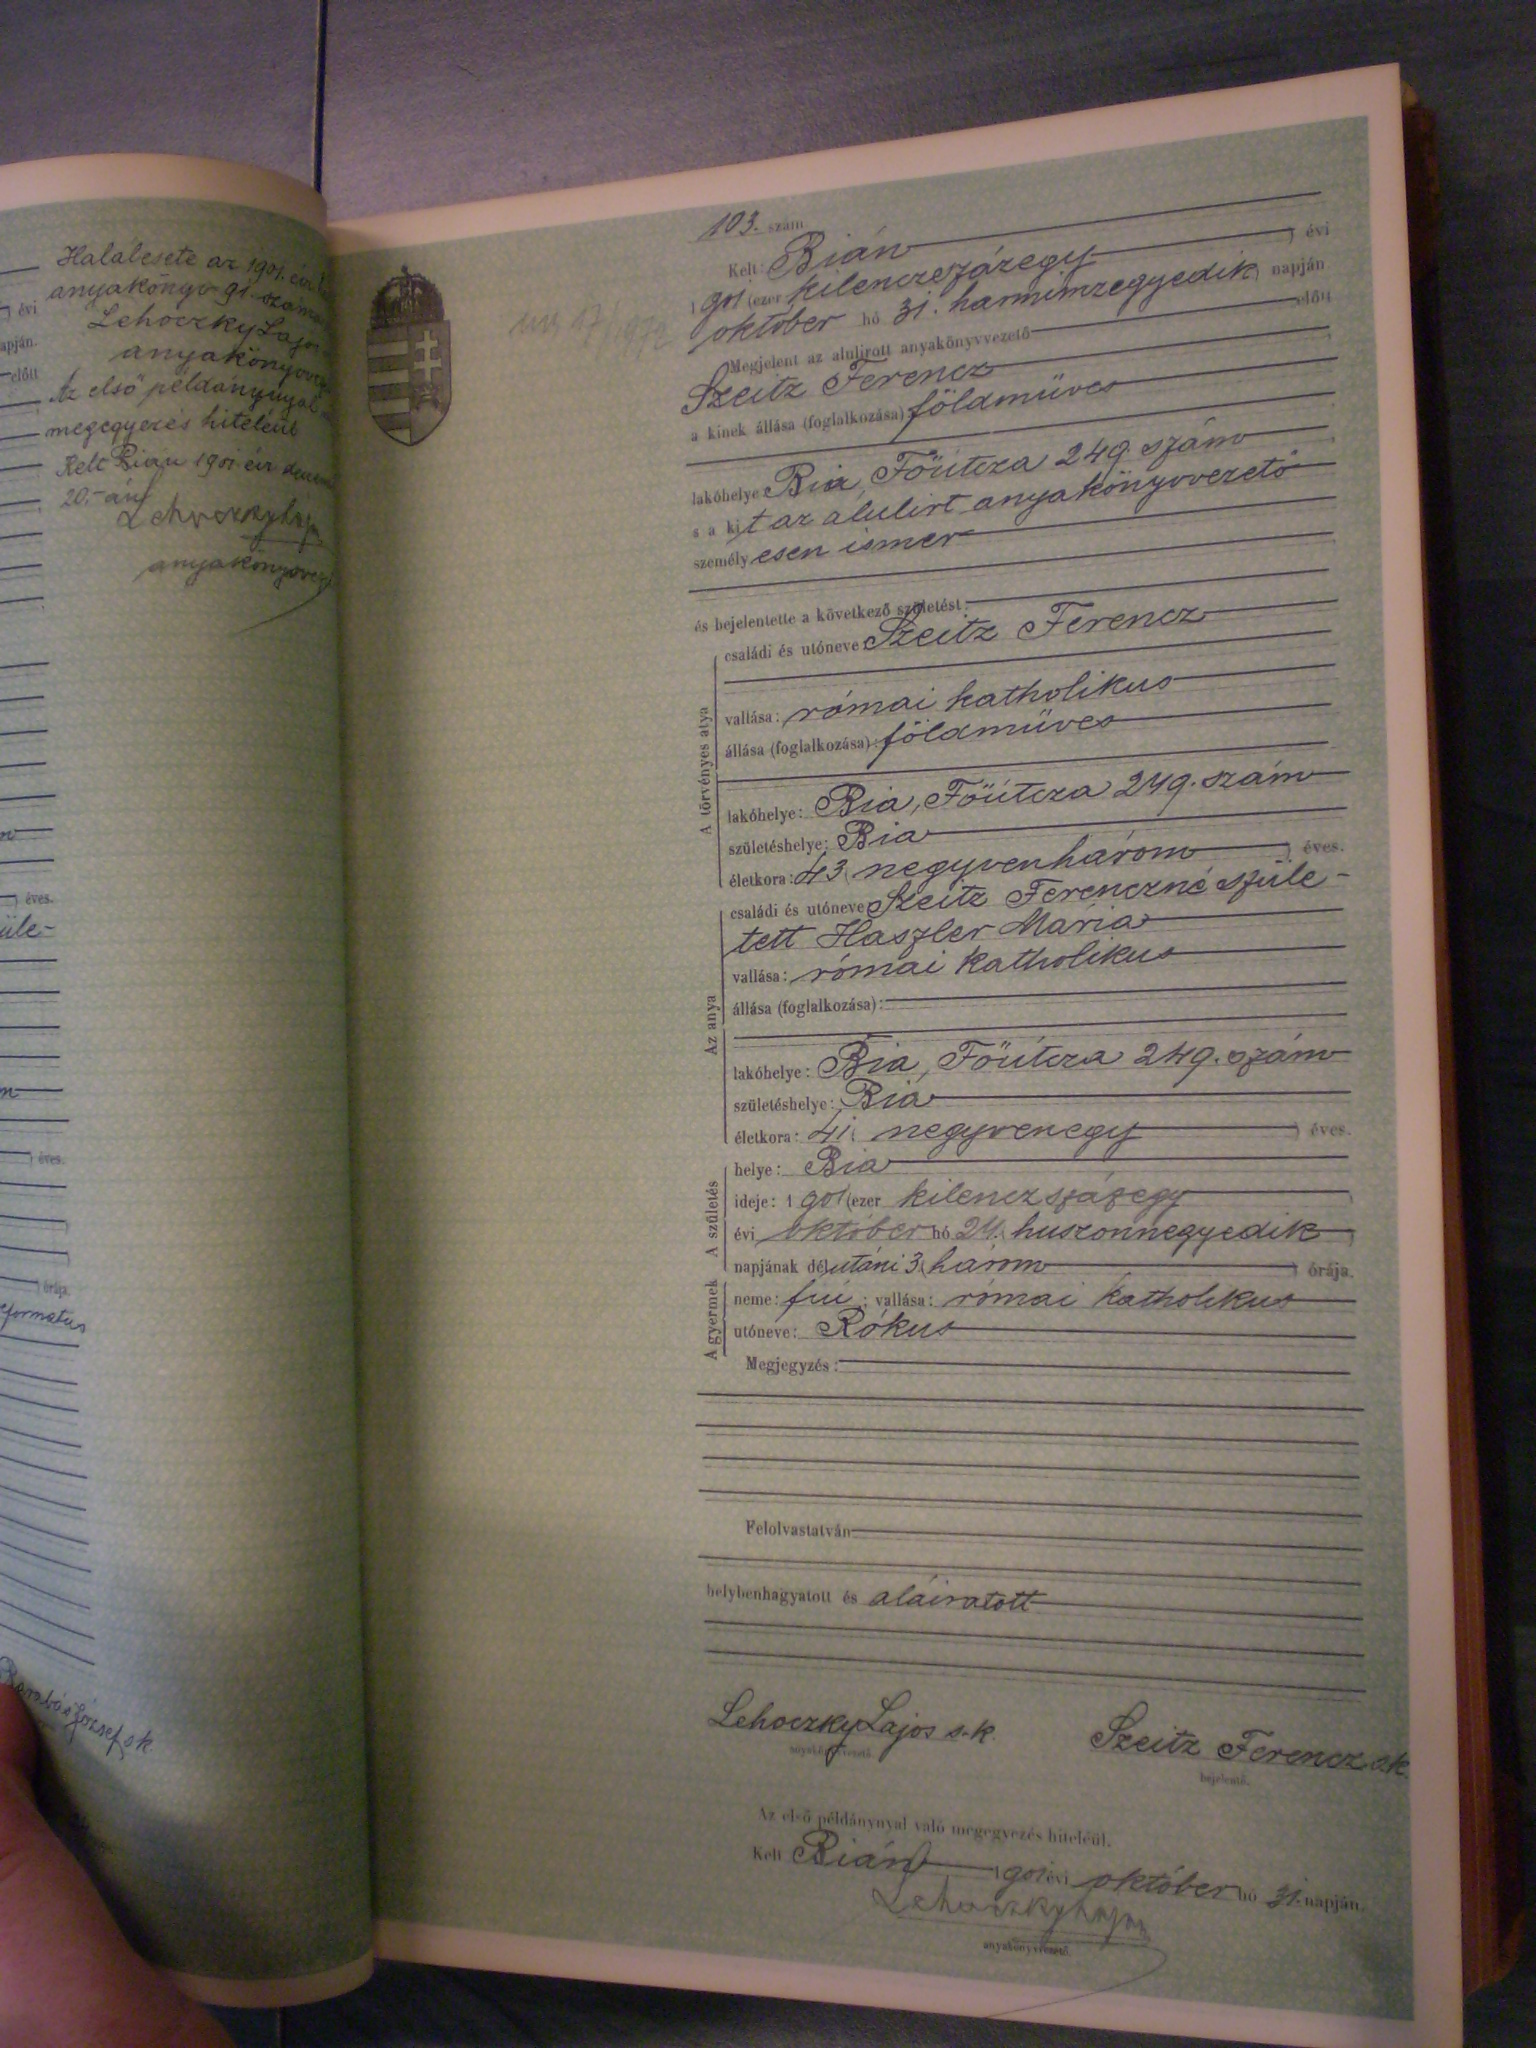 Halálesete az 1901. évi
anyakönyv 91. szám
Lehoczky Lajos
anyakönyvv
Az első példánynyal
megegyezés hiteléül
Kelt Bián 1901 évi
20.-án
Lehoczky Lajos
anyakönyvvez
évi
napján.
előtt
éves.
üle-
éves.
órája.
eformatus
Barabás József s.k.
103. szám
Kelt: Bián
1901 (ezer kilenczszázegy ) évi
október hó 31. harminczegyedik napján
Megjelent az alulirott anyakönyvvezető előtt
Szeitz Ferencz
a kinek állása (foglalkozása) földmüves
lakóhelye Bia, Főútcza 249. szám
s a kit az alulirt anyakönyvvezető
személyesen ismer
és bejelentette a következő születést:
A törvényes atya
családi és utóneve Szeitz Ferencz
vallása: római katholikus
állása (foglalkozása): földmüves
lakóhelye: Bia, Főútcza 249. szám
születéshelye: Bia
életkora: 43 (negyvenhárom ) éves.
Az anya
családi és utóneve Szeitz Ferenczné szüle-
tett Haszler Mária
vallása: római katholikus
állása (foglalkozása):
lakóhelye: Bia, Főútcza 249. szám
születéshelye: Bia
életkora: 41 (negyvenegy ) éves.
A születés
helye: Bia
ideje: 1901 (ezer kilenczszázegy )
évi október hó 24. (huszonnegyedik )
napjának délutáni 3 (három ) órája.
A gyermek
neme: fiú ; vallása: római katholikus
utóneve: Rókus
Megjegyzés:
Felolvastatván
helybenhagyatott és aláiratott
Lehoczky Lajos s.k. Szeitz Ferencz s.k.
anyakönyvvezető. bejelentő.
Az első példánynyal való megegyezés hiteléül.
Kelt Bián 1901 évi október hó 31. napján.
Lehoczky Lajos
anyakönyvvezető.